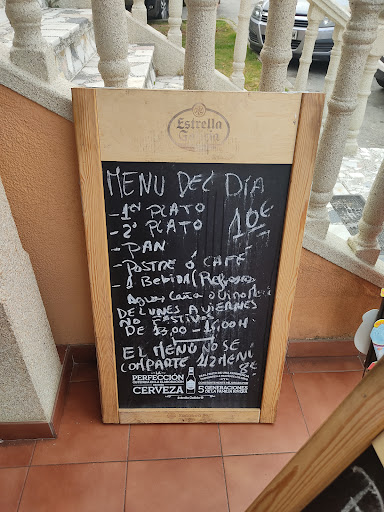 Estrella
Galicia
MENU DEL DIA
-1er PLATO 10€
-2º PLATO
-PAN
-POSTRE Ó CAFÉ
-1 BEBIDA (Refresco
Agua, Caña o Vino
DE LUNES A VIERNES
NO FESTIVOS
DE 13,00 - 16,00H
EL MENÚ NO SE
COMPARTE 1/2 MENU
8€
LA
PERFECCIÓN
CERVEZA
5 GENERACIONES
DE LA FAMILIA RIVERA